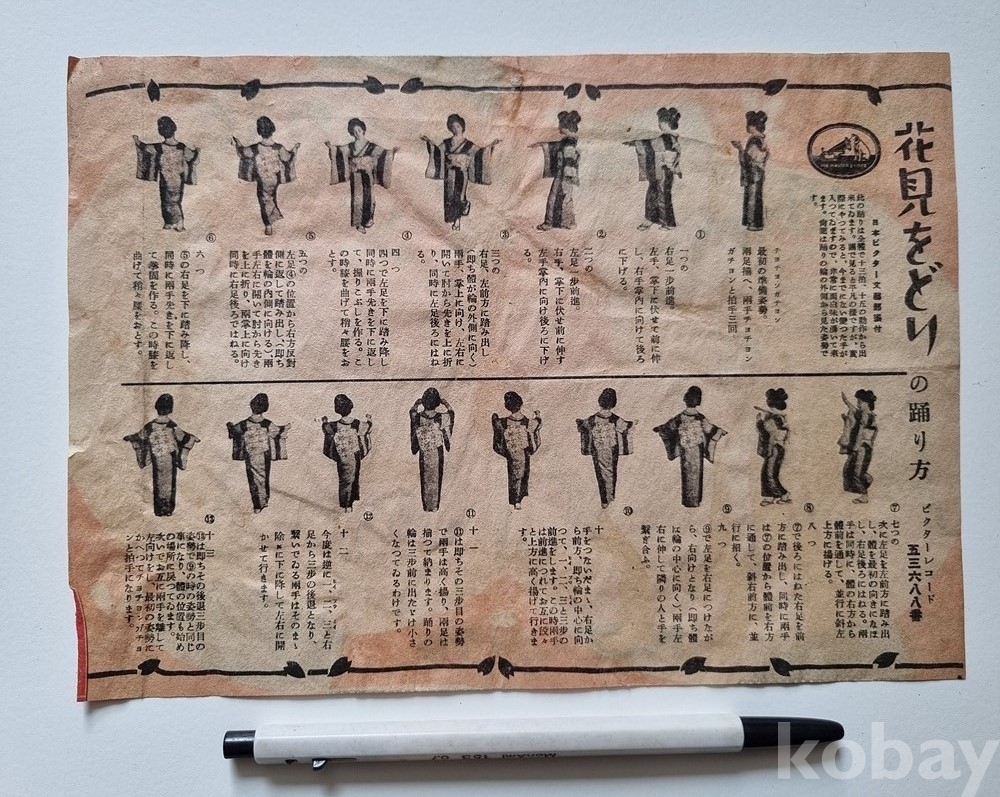 花見をどり
の踊り方
ビクターレコード
五三六八八番
HIS MASTER'S VOICE
日本ビクター文藝部振付
此の踊りは全體で十三拍、十五の動作から出
來てゐます。
す。
チヨチヨンガチヨン
最初の準備姿勢。
兩足揃へ、兩手チヨチヨン
ガチヨンと拍手三回。
①
一つの
右足一步前進。
左手、掌下に伏せて前に伸
し、右手掌内に向けて後ろ
に下げる。
②
二つの
左足一步前進。
右手、掌下に伏せ前に伸す
左手掌内に向け後ろに下げ
る。
③
三つの
右足、左前方に踏み出し
(即ち體が輪の外側に向く)
兩手、掌上に向け、左右に
開いて肘から先きを上に折
り、同時に左足後ろにはね
る。
④
四つ
四つで左足を下に踏み降し
同時に兩手先きを下に返し
て、握りこぶしを作る。こ
の時膝を曲げて稍々腰をお
とす。
⑤
五つの
左足④の位置から右方反對
側に返して踏み出し、(即ち
體を輪の内側に向ける)、兩
手左右に開いて肘から先き
を上に折り、兩掌上に向け
同時に右足後ろではねる。
⑥
六つ
⑤の右足を下に踏み降し、
同時に兩手先きを下に返し
て拳固を作る。この時膝を
曲げて稍々腰をおとす。
⑦
七つの
次に左足を左前方に踏み出
し、體を最初の向きになほ
し、右足後ろにはねる。兩
手は同時に、體の右方から
體前を通して、並行に斜左
上方に揚げる。
⑧
八つ
⑦で後ろにはねた右足を前
方に踏み出し、同時に兩手
は⑦の位置から體前を右方
に通して、斜右前方に、並
行に招く。
⑨
九つ
⑨で左足を右足につけなが
ら、右向けとなり(即ち體
は輪の中心に向く)、兩手左
右に伸して隣りの人と手を
繫ぎ合ふ。
⑩
十
手をつないだまゝ、右足か
ら前方、即ち輪の中心に向
つて、一、二、三と三步の
前進をします。この時兩手
は前進につれてお互に段々
と上方に高く揚げて行きま
す。
⑪
十一
⑪は即ちその三步目の姿勢
で兩手は高く揚り、兩足は
揃つて納まります。踊りの
輪は三步前に出たゞけ小さ
くなつてゐるわけです。
⑫
十二
今度は逆に一、二、三と右
足から三步の後退となり、
繫いでゐる兩手はそのまゝ
除々に下に降して左右に開
かせて行きます。
⑬
十三
⑬は即ちその後退三步目の
姿勢で⑨の時の姿勢と同じ
事になり、體の位置も始め
の場所に戾つてゐます。
次いでお互に兩手を離して
左向けをし、最初の姿勢に
かへつてチヨチヨンガチヨ
ンと拍手になります。
MONAMI 153 0.7
kobay